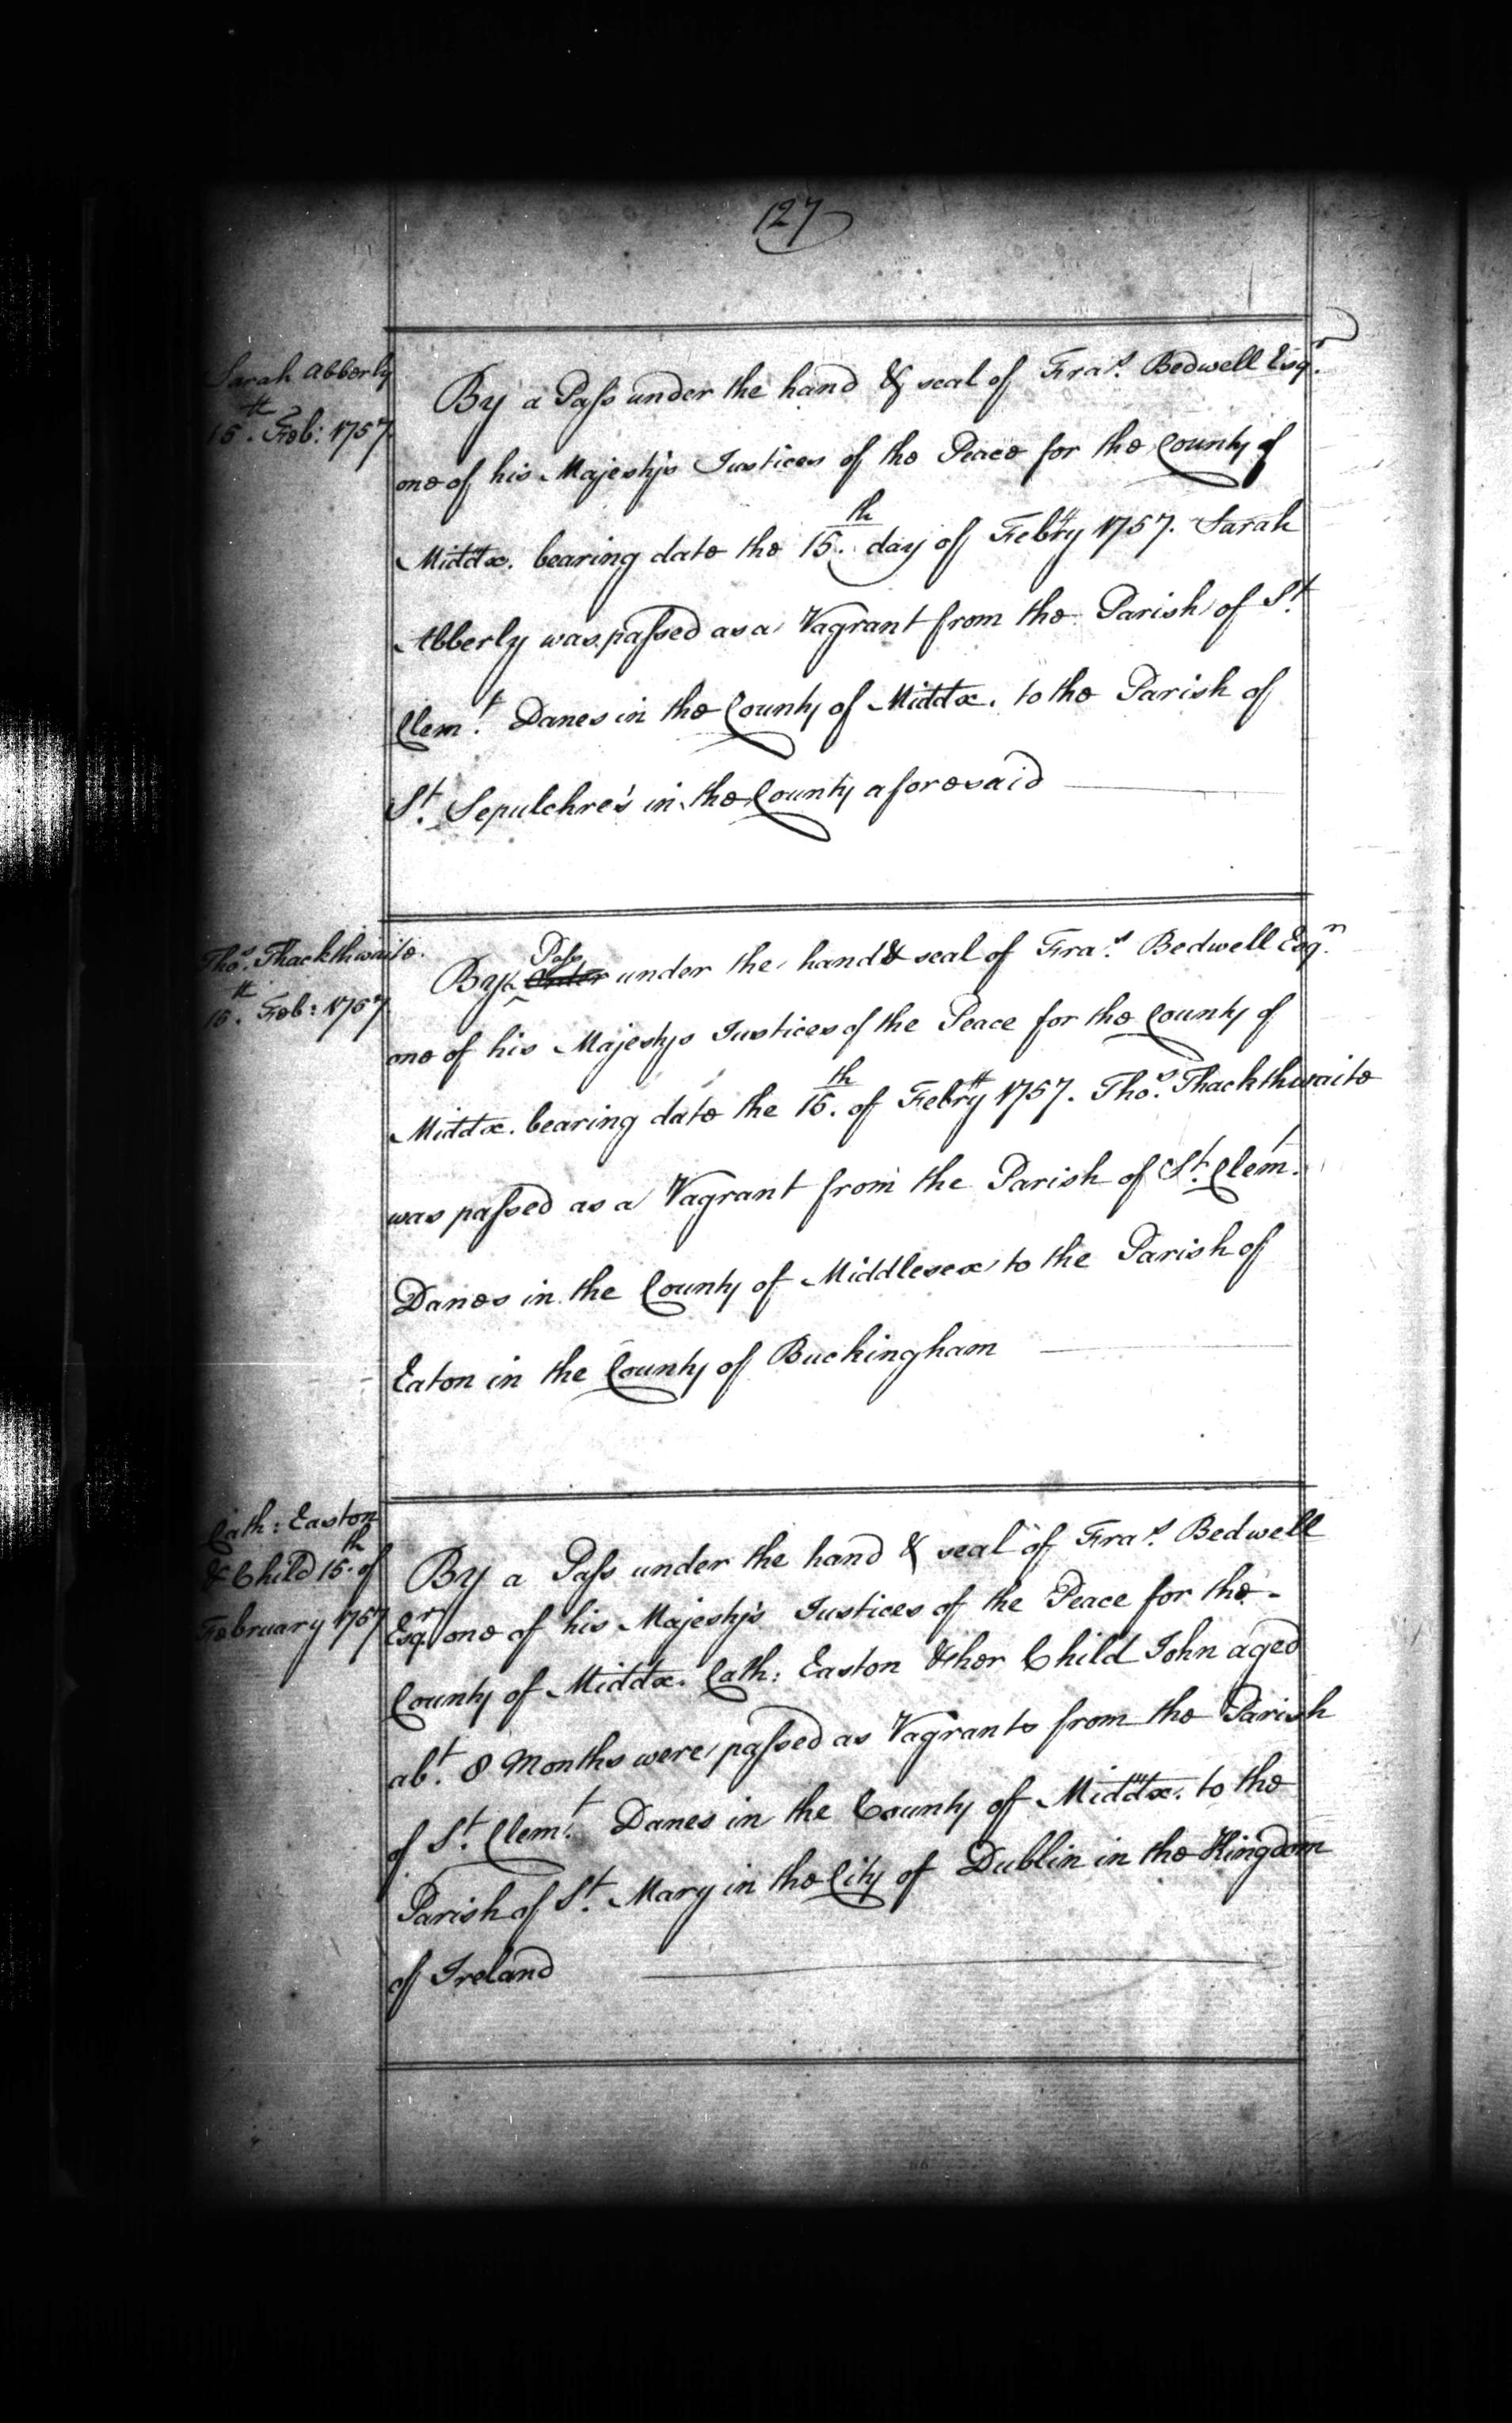 127
Sarah Abberly
15th. Feb: 1757
By a Pass under the hand & seal of Fras. Bedwell Esqr.
one of his Majesty's Justices of the Peace for the County of
Middx. bearing date the 15th. day of Febry 1757. Sarah
Abberly was passed as a Vagrant from the Parish of St.
Clemt. Danes in the County of Middx. to the Parish of
St. Sepulchre's in the County aforesaid
Thos. Thackthwaite.
15th. Feb: 1757
By a Pass Order under the hand & seal of Fras. Bedwell Esqr.
one of his Majestys Justices of the Peace for the County of
Middx. bearing date the 15th. of Febry 1757. Thos. Thackthwaite
was passed as a Vagrant from the Parish of St. Clemt.
Danes in the County of Middlesex to the Parish of
Eaton in the County of Buckingham
Cath: Easton
& Child 15th. of
February 1757
By a Pass under the hand & seal of Fras. Bedwell
Esqr. one of his Majesty's Justices of the Peace for the
County of Middx. Cath: Easton & her Child John aged
abt. 8 Months were passed as Vagrants from the Parish
of St. Clemt. Danes in the County of Middx. to the
Parish of St. Mary in the City of Dublin in the Kingdom
of Ireland